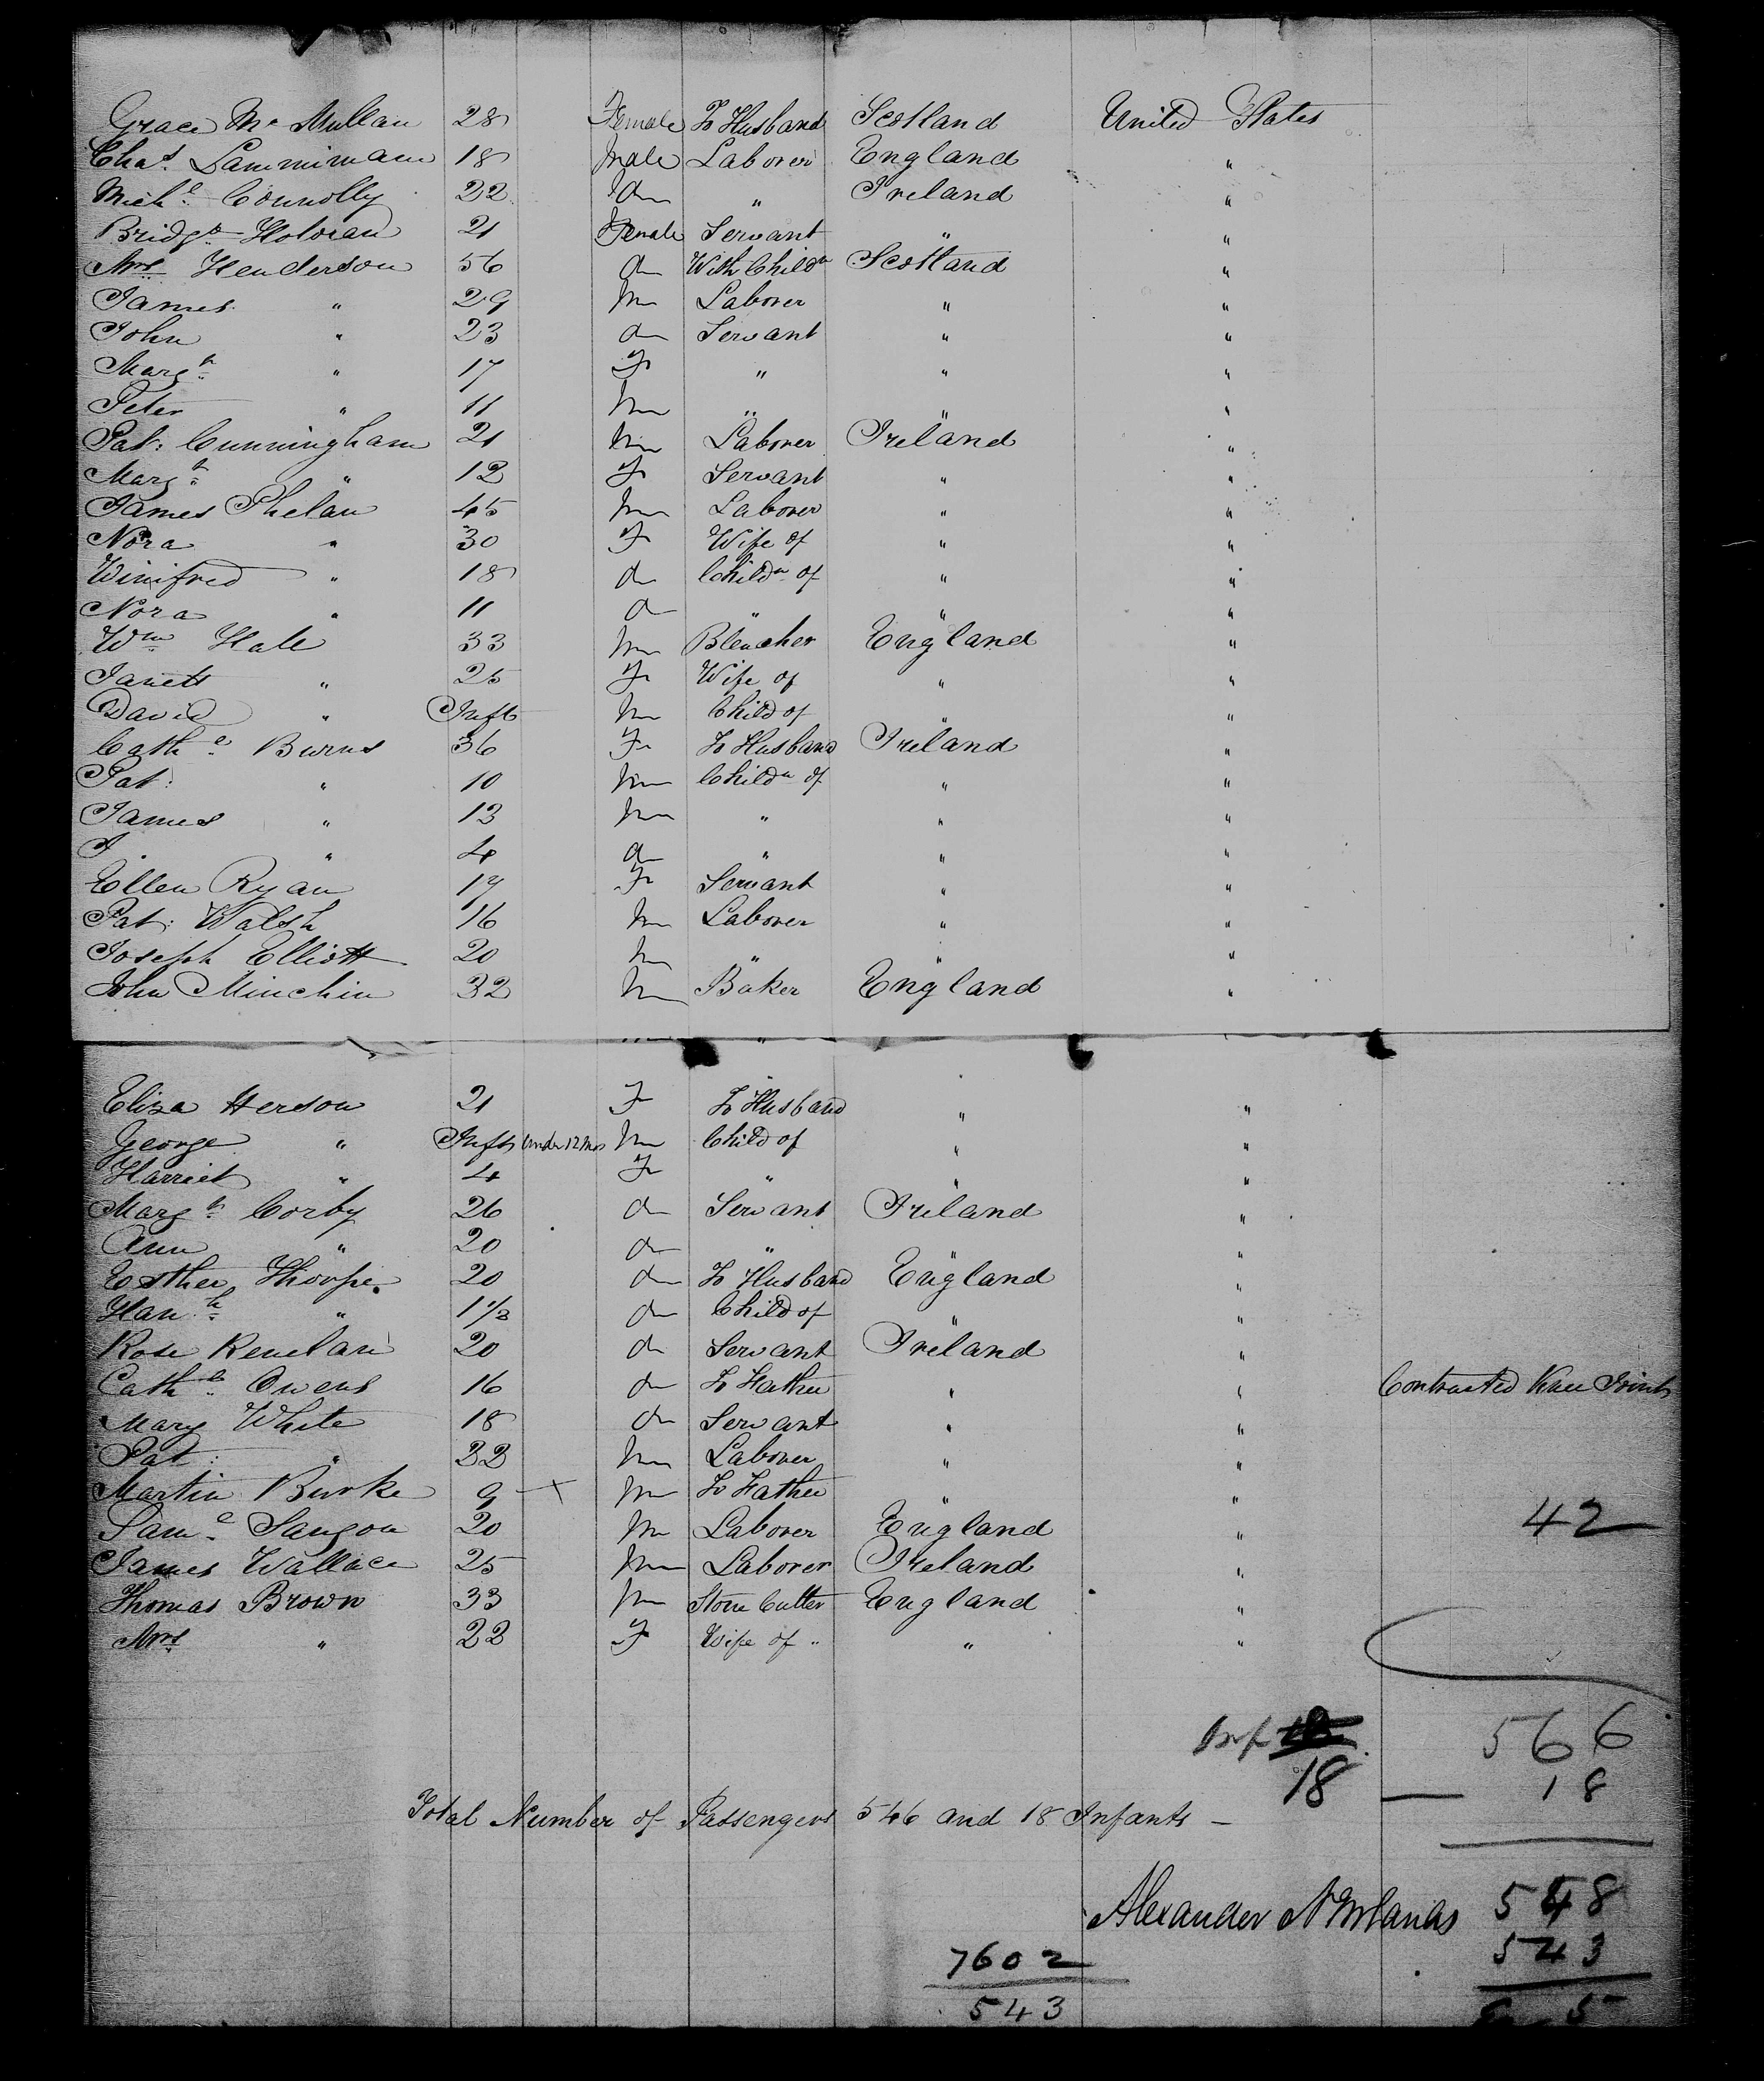 Grace Mc Mullan 28 Female To Husband Scotland United States
Chas. Lammimam 18 Male Laborer England "
Michl. Connolly 22 do " Ireland "
Bridgt. Holoran 21 Female Servant " "
Mrs Henderson 56 do With Childn Scotland "
James " 29 M Laborer " "
John " 23 do Servant " "
Margt. " 17 F " " "
Peter " 11 M " " "
Pat: Cunningham 21 M Laborer Ireland "
Margt. " 12 F Servant " "
James Phelan 45 M Laborer " "
Nora " 30 F Wife of " "
Winifred " 18 do Childn of " "
Nora " 11 do " " "
Wm Hale 33 M Bleacher England "
Janett " 25 F Wife of " "
David " Inft M Child of " "
Cathe. Burns 36 F To Husband Ireland "
Pat: " 10 M Childn of " "
James " 13 M " " "
J. " 4 do " " "
Ellen Ryan 17 F Servant " "
Pat: Walsh 16 M Laborer " "
Joseph Elliott 20 M " " "
John Minchin 32 M Baker England "
Eliza Herson 21 F To Husband " "
George " Inft under 12 Mos M Child of " "
Harriet " 4 F " " "
Margt. Corby 26 do Servant Ireland "
Ann " 20 do " " "
Esther Thorpe 20 do To Husband England "
Hanh. " 1 1/2 do Child of " "
Rose 20 do Servant Ireland "
Cathe. Owens 16 do To Father " " Contracted Knee Joints
Mary White 18 do Servant " "
Pat: " 22 M Laborer " "
Martin Burke 9 x M To Father " "
Saml. Sangon 20 M Laborer England " 42
James Wallace 25 M Laborer Ireland "
Thomas Brown 33 M Stone Cutter England "
Mrs " 22 F Wife of " " "
Inf 18
566
18
Total Number of Passengers 546 and 18 Infants —
Alexander
548
543
5
7602
543